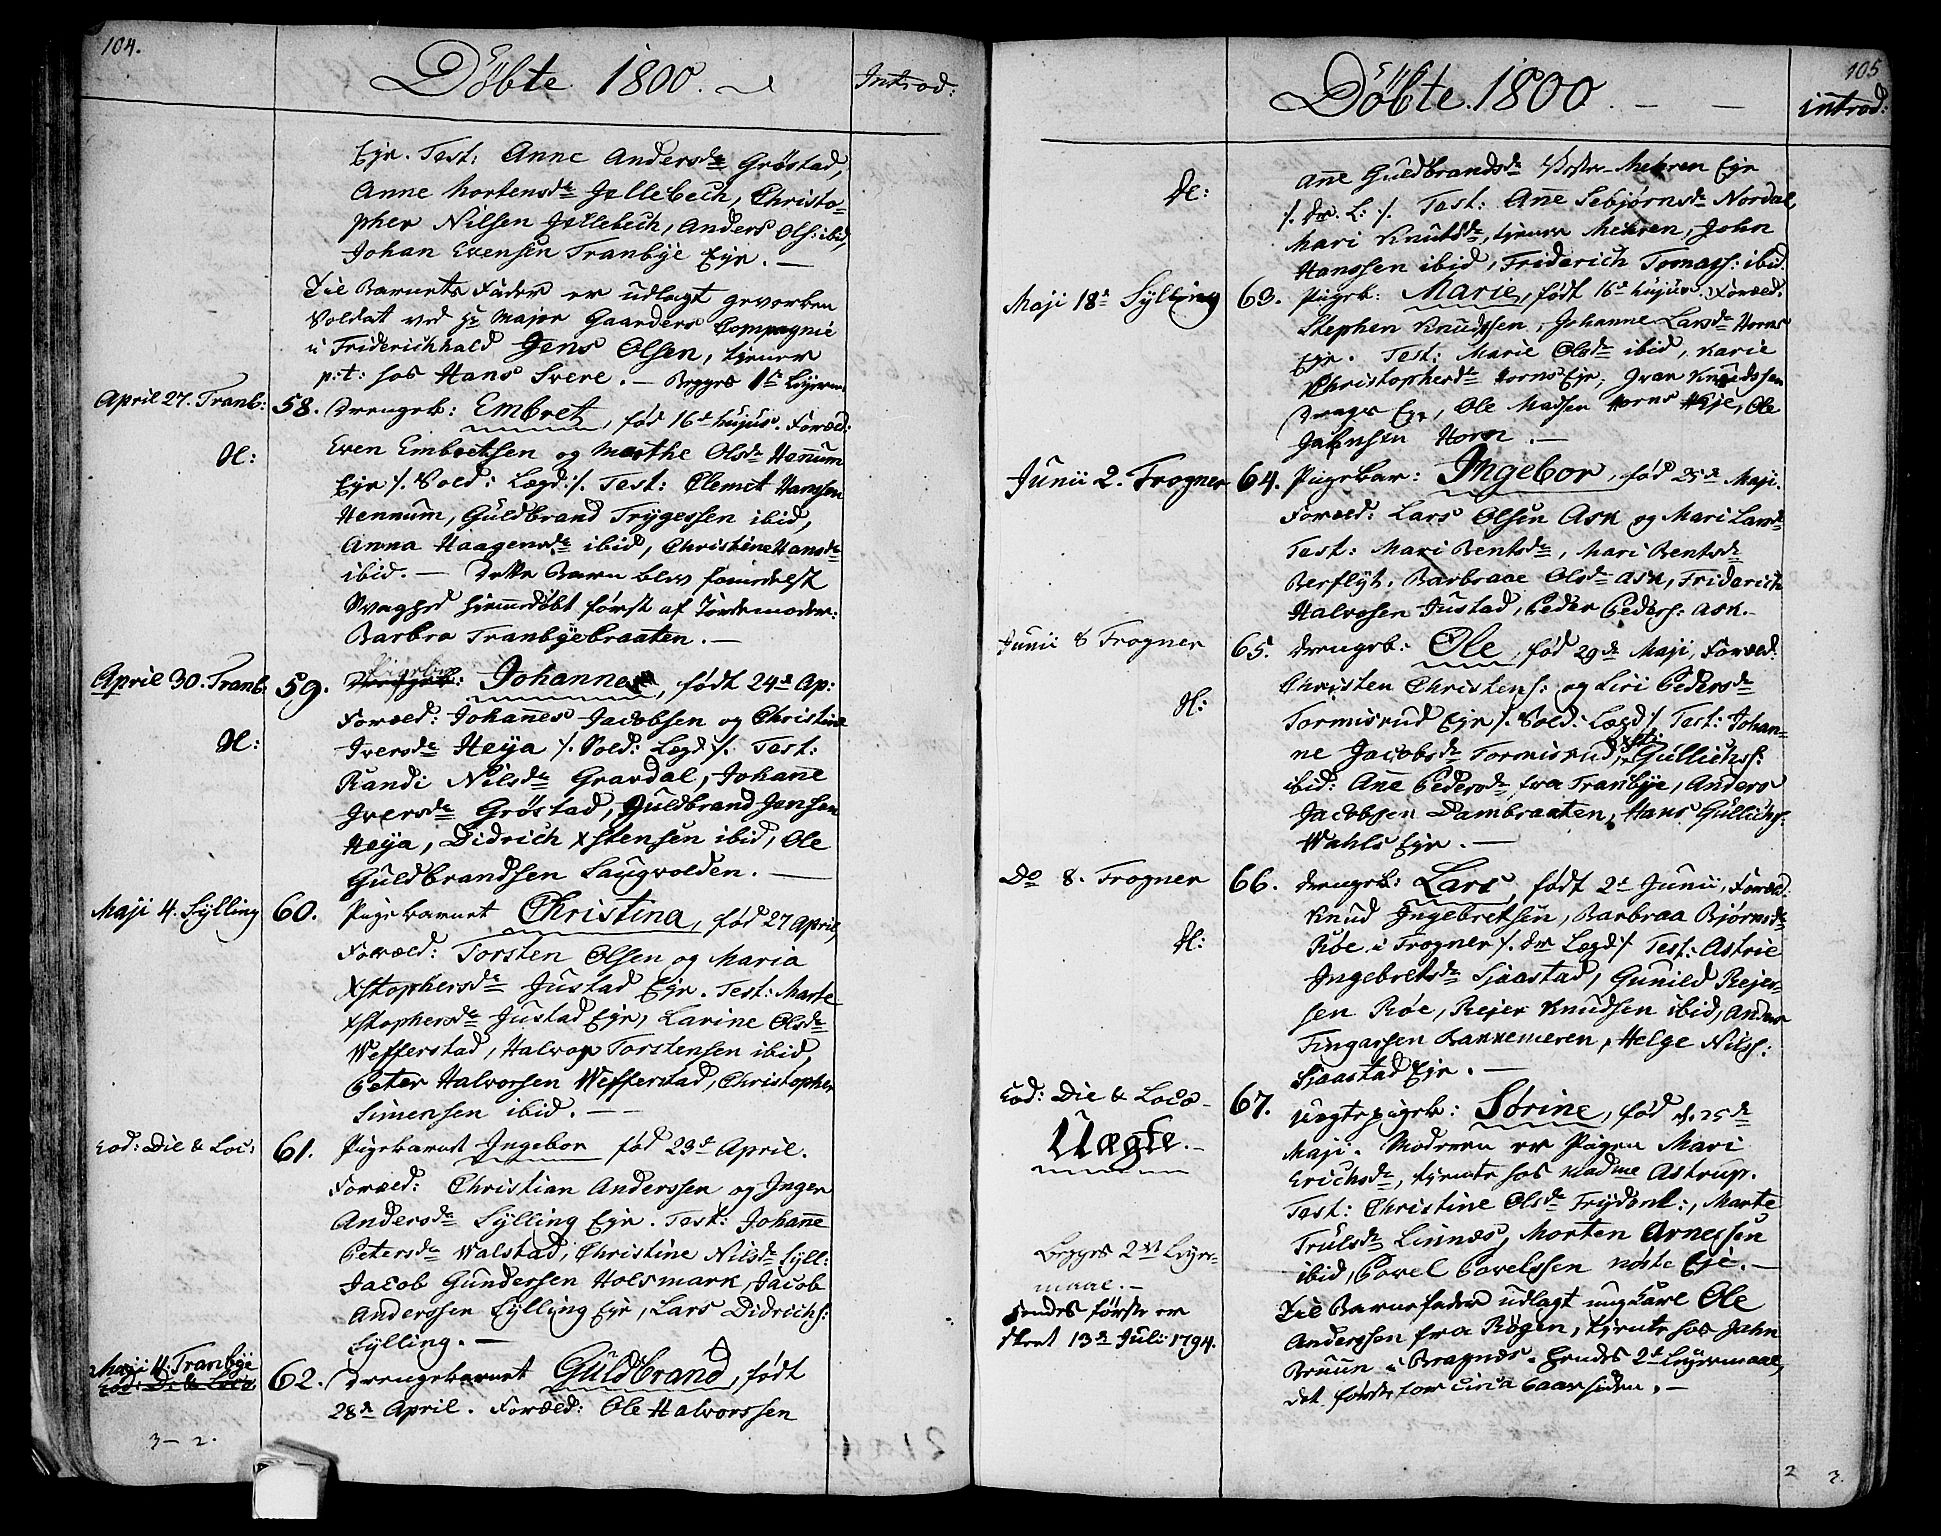 104.
Döbte 1800.
Introd:
Eje. Test: Anne Andersd: Gröstad,
Anne Mortensd: Jellebech, Christo-
pher Nilsen Jellebech, Anders Ols: ibid,
Johan Evensen Tranbye Eje. —
Til Barnets Fader er udlagt gevorben
Soldat ved Hr Major Gaarders Compagnie
i Friderichhald Jens Olsen, tjener
p:t: hos Hans Svere. — Begges 1ste Leierm:
April 27. Tranb: 58. Drengeb: Embret, föd 16de hujus. Foræld:
Even Embretsen og Marthe Olsd: Hennum
Eje /: Sold: Lægd :/. Test: Clemet Hanssen
Hennum, Guldbrand Trygessen ibid,
Anna Haagensd: ibid, Christine Hansd:
ibid. — Dette Barn blev formedelst
Svaghed hiemmedöbt först af Jordemoder:
Barbro Tranbyebraaten. —
April 30. Tranb: 59. Pigeb: Johanne, födt 24de Ap:
Foræld: Johannes Jacobsen og Christine
Iversd: Heya /: Sold: Lægd :/. Test:
Randi Nilsd: Gravdal, Johanne
Iversd: Gröstad, Guldbrand Jansen
Heya, Didrich Xstensen ibid, Ole
Guldbrandsen Laugvolden. —
Maji 4. Sylling 60. Pigebarnet Christina, föd 27 April,
Foræld: Torsten Olsen og Maria
Xstophersd: Justad Eje. Test: Marte
Xstophersd: Justad Eje, Larine Olsd:
Wefferstad, Halvor Torstensen ibid,
Peter Halvorsen Wefferstad, Christopher
Simensen ibid. —
Eod: Die & Loc: 61. Pigebarnet Ingebor föd 23de April.
Foræld: Christian Anderssen og Inger
Andersd: Sylling Eje. Test: Johanne
Petersd: Walstad, Christine Nilsd: Syll:
Jacob Gundersen Holsmark, Jacob
Anderssen Sylling Eje, Lars Didrichs:
Sylling. —
Maji 11. Tranbye
Eod: Di & Loco 62. Drengebarnet Guldbrand, födt
28de April. Foræld: Ole Halvorssen
3 — 2.
105
Döbte 1800. — —
introd:
Anne Guldbrandsd: Vestre Mehren Eje
/: Dr. L: /. Test: Anne Sebjörnsd: Nordal,
Mari Knutsd:, tjener Mehren, John
Hanssen ibid, Friderich Tomass: ibid.
Maji 18de Sylling 63. Pigeb: Marie, födt 16de hujus. Foræld.
Stephen Knudssen, Johanne Larsd: Horns
Eje. Test: Marie Olsd: ibid, Karie
Christophersd: Horns Eje, Ivar Knudssen
Drags Eje, Ole Madsen Horns Eje, Ole
Jahnsen Horn. —
Junii 2. Frogner 64. Pigebar: Ingebor, föd 25de Maji.
Foræld: Lars Olsen Ask og Mari Larsd:
Test: Mari Bentsd:, Mari Bentsd:
Berflyt, Barbraae Olsd: Ask, Friderich
Halvorsen Justad, Peder Peders: Ask. —
Junii 8 Frogner 65. Drengeb: Ole, föd 29de Maji, Foræld:
Christen Christens: og Siri Pedersd:
Tormisrud Eje /: Sold: Lægd /. Test: Johan-
ne Jacobsd: Tormisrud, Gullichs:
ibid: Anne Pedersd: fra Tranbye, Anders
Jacobsen Dambraaten, Hans Gullichs:
Wahls Eje. —
Do 8. Frogner 66. Drengeb: Lars, födt 2de Junii, Foræld:
Knud Ingebretsen, Barbraa Björnsd:
Röe i Frogner /: Dr Lægd /. Test: Astrie
Ingebretsd: Sjaastad, Gunild Rejer-
sen Röe, Rejer Knudsen ibid, Anders
Fingarsen Bakkemeren, Helge Nilss:
Sjaastad Eje. —
Eod: Die & Loco — 67. Uægte pigeb: Sörine, föd d. 25de
Uægte. —
Maji. Moderen er Pigen Mari
Erichsd:, tjente hos Madme Astrup.
Test: Christine Olsd: Frydenl:, Marte
Trulsd: Linnæs, Morten Arnessen
ibid, Povel Povelssen Nöste Eje. —
Begges 2det Leyer-
maal. —
Hendes förste er
skeet 13de Juli 1794.
Til Barnefader udlagt ungkarl Ole
Anderssen fra Rögen, tjente hos Jahn
Bruun i Bragnæs. Hendes 2det Leyermaal,
det förste for circa 6 aar siden. —
2 3.